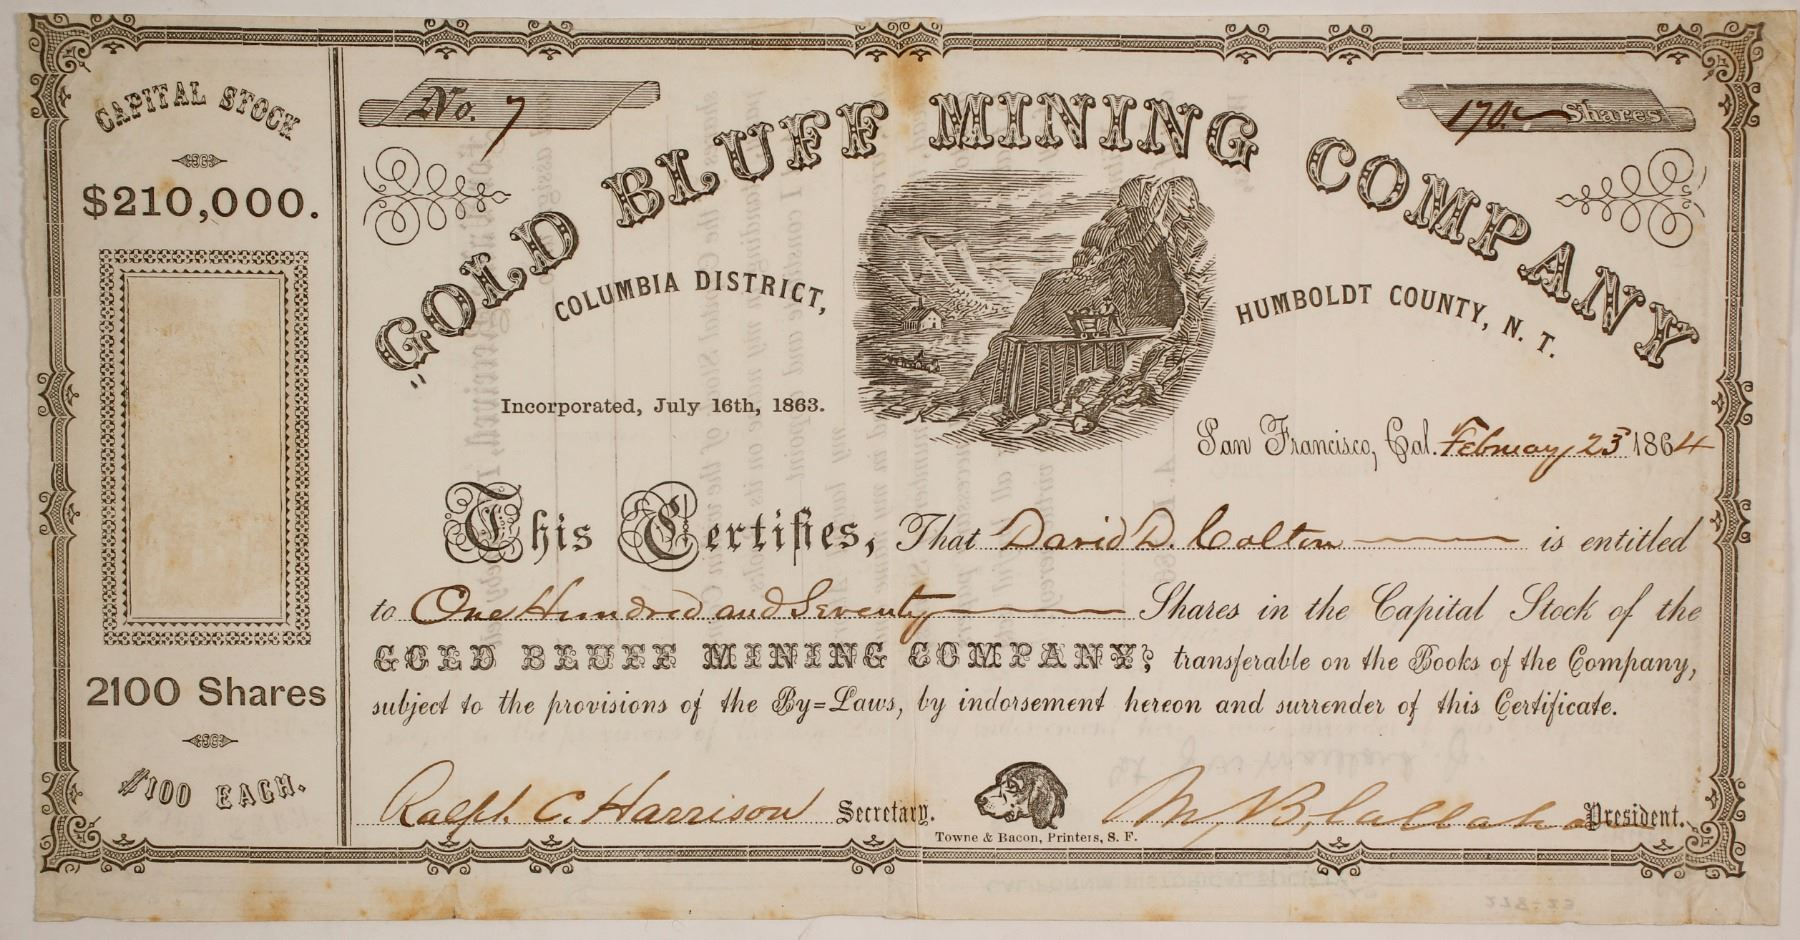 CAPITAL STOCK
$210,000.
2100 Shares
$100 EACH.
No. 7
170. Shares
"GOLD BLUFF MINING COMPANY"
COLUMBIA DISTRICT,
HUMBOLDT COUNTY, N. T.
Incorporated, July 16th, 1863.
San Francisco, Cal. February 23 1864
This Certifies, That David D. Colton is entitled
to One Hundred and Seventy Shares in the Capital Stock of the
GOLD BLUFF MINING COMPANY, transferable on the Books of the Company,
subject to the provisions of the By=Laws, by indorsement hereon and surrender of this Certificate.
Ralph. C. Harrison Secretary.
President.
Towne & Bacon, Printers, S. F.